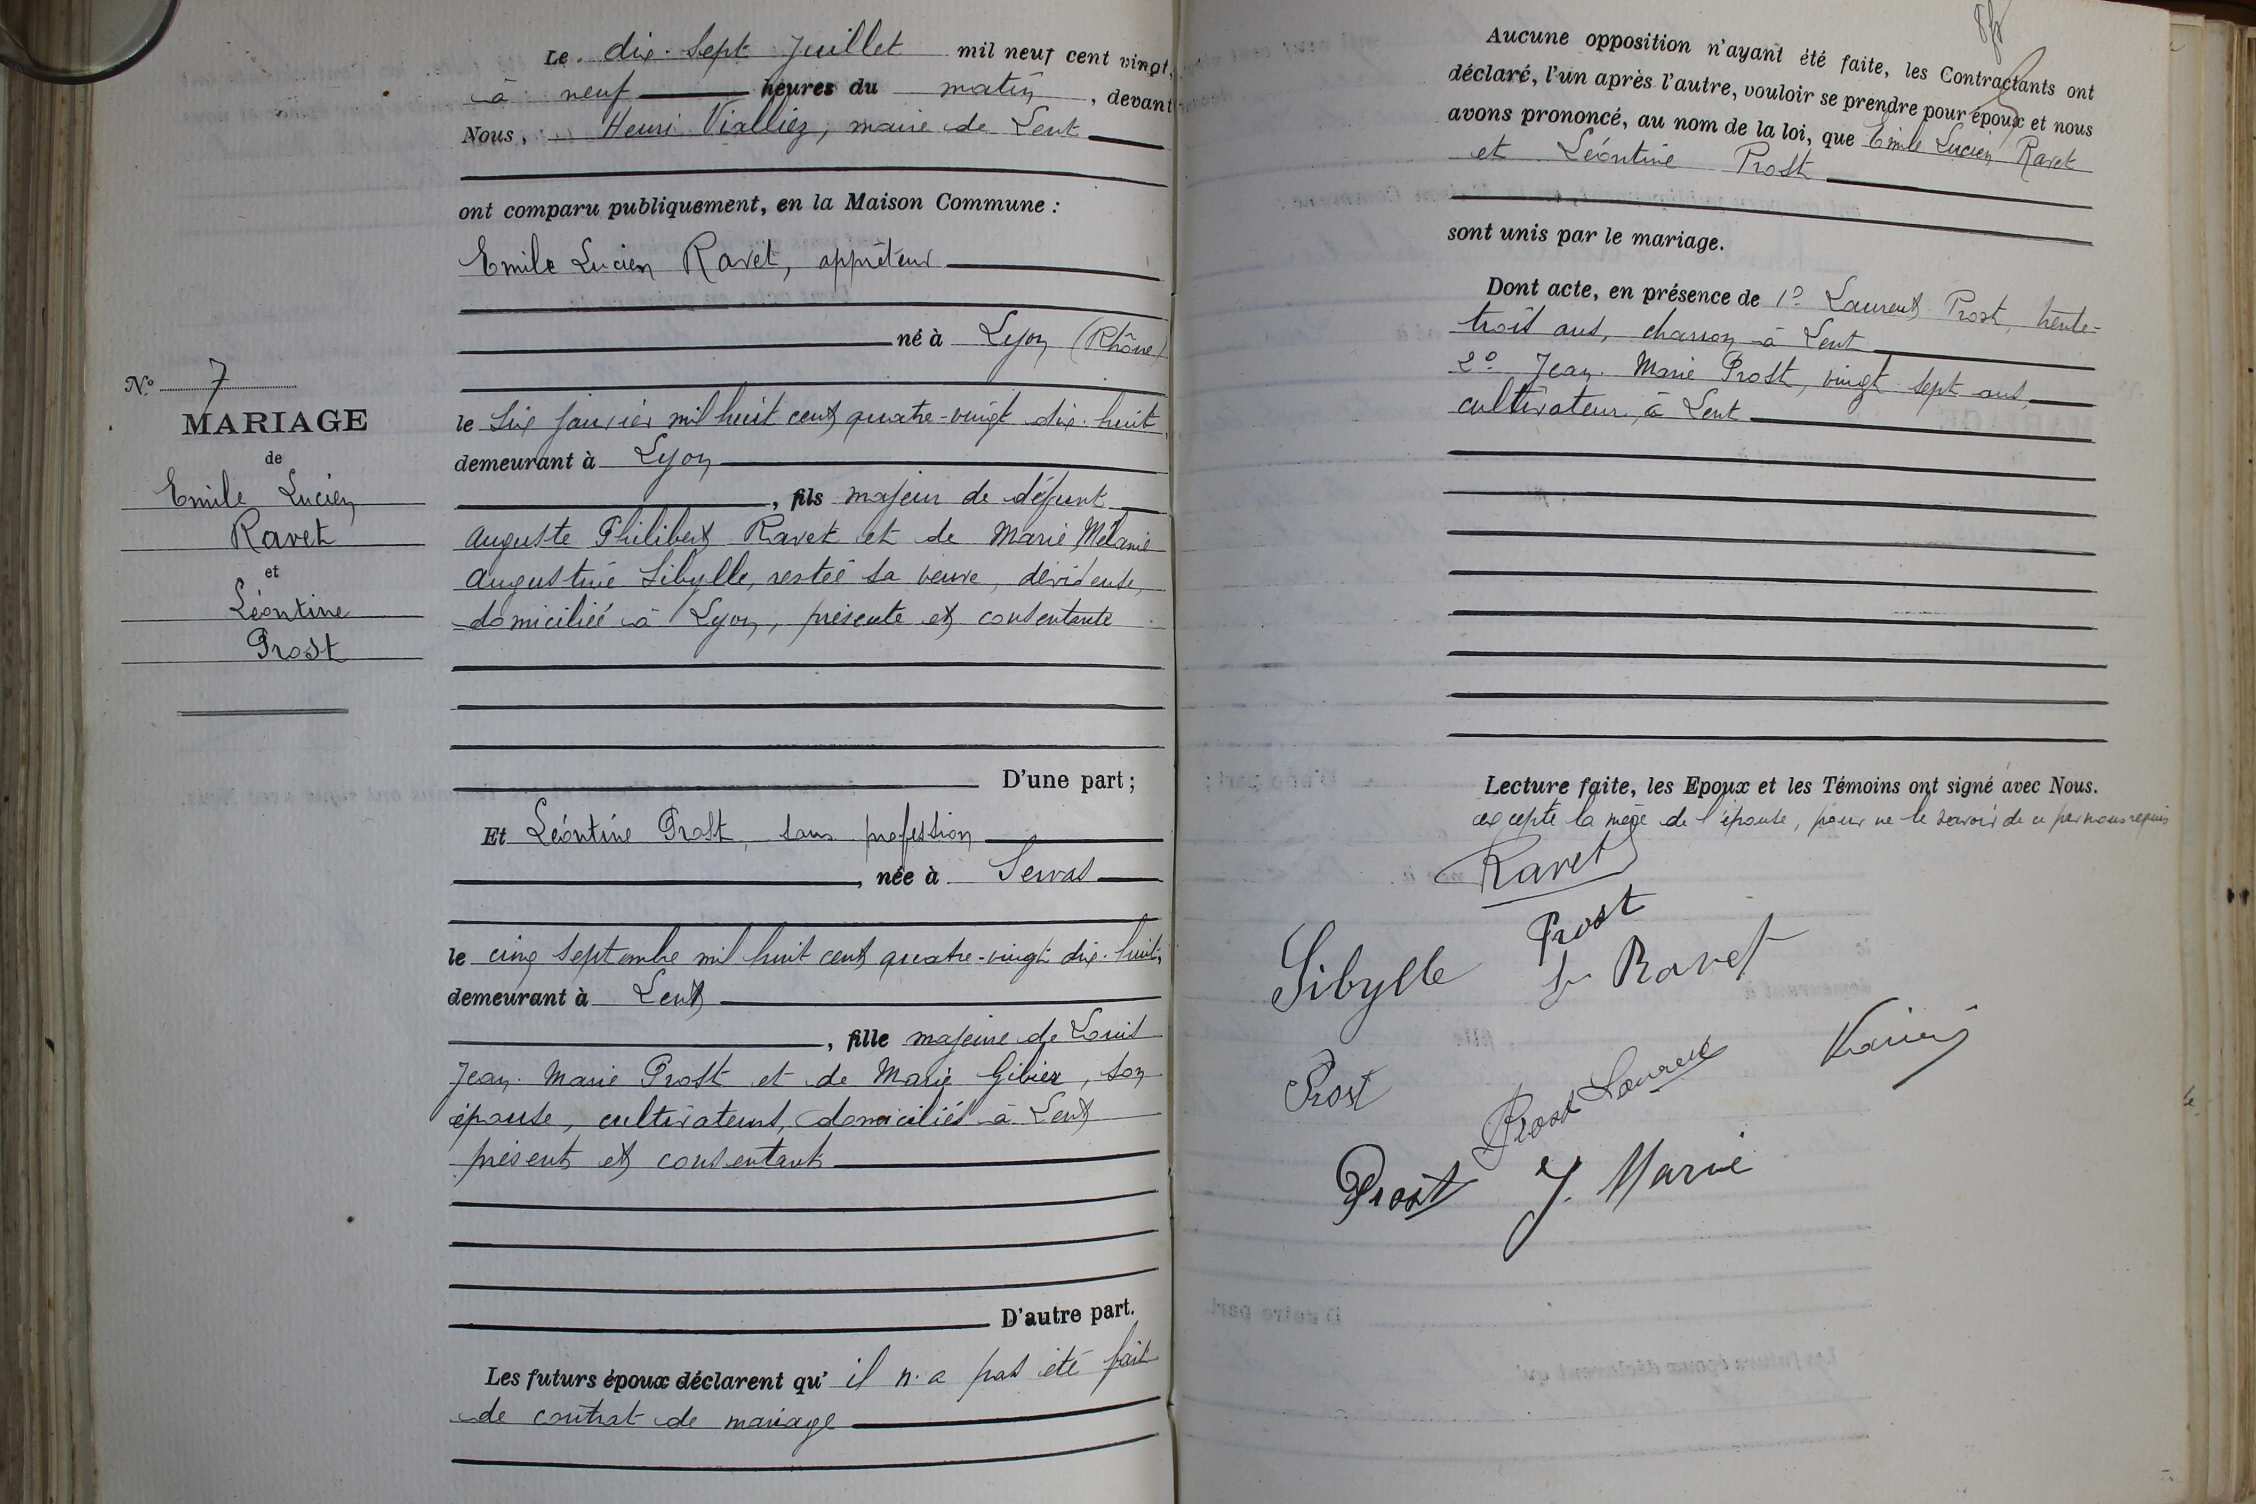 Le dix-sept Juillet mil neuf cent vingt,
à neuf heures du matin, devant
Nous, Henri Vialliez, maire de Lent
ont comparu publiquement, en la Maison Commune :
Emile Lucien Ravet, apprêteur
né à Lyon (Rhône)
le six janvier mil huit cent quatre-vingt dix-huit,
demeurant à Lyon
, fils majeur de défunt
Auguste Philibert Ravet et de Marie Mélanie
Augustine Sibylle, restée sa veuve, dévideuse,
domiciliée à Lyon, présente et consentante
D'une part ;
Et Léontine Prost, sans profession
, née à Servas
le cinq septembre mil huit cent quatre-vingt dix-huit,
demeurant à Lent
, fille majeure de Louis
Jean-Marie Prost et de Marie Gibier, son
épouse, cultivateurs, domiciliés à Lent
présents et consentants
D'autre part.
Les futurs époux déclarent qu'il n'a pas été fait
de contrat de mariage
N° 7
MARIAGE
de
Emile Lucien
Ravet
et
Léontine
Prost
Aucune opposition n'ayant été faite, les Contractants ont
déclaré, l'un après l'autre, vouloir se prendre pour époux et nous
avons prononcé, au nom de la loi, que Emile Lucien Ravet
et Léontine Prost
sont unis par le mariage.
Dont acte, en présence de 1° Laurent Prost, trente-
trois ans, charron à Lent
2° Jean-Marie Prost, vingt-sept ans,
cultivateur, à Lent
Lecture faite, les Epoux et les Témoins ont signé avec Nous.
excepté la mère de l'épouse, pour ne le savoir de ce par nous requis
Ravet
Prost
Sibylle
Ravet
Prost
Prost Laurent
Prost J. Marie